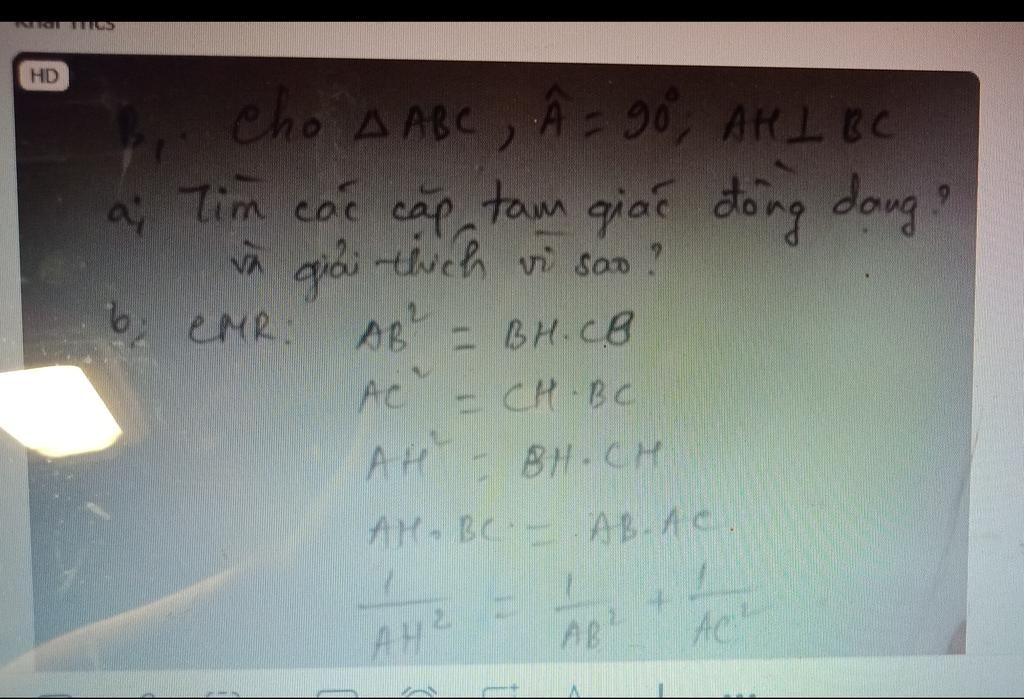 HD
B1. Cho △ABC, Â = 90°, AH ⊥ BC
a; Tìm các cặp tam giác đồng dạng?
và giải thích vì sao?
b; CMR: AB² = BH.CB
AC² = CH.BC
AH² = BH.CH
AH.BC = AB.AC.
1/AH² = 1/AB² + 1/AC²